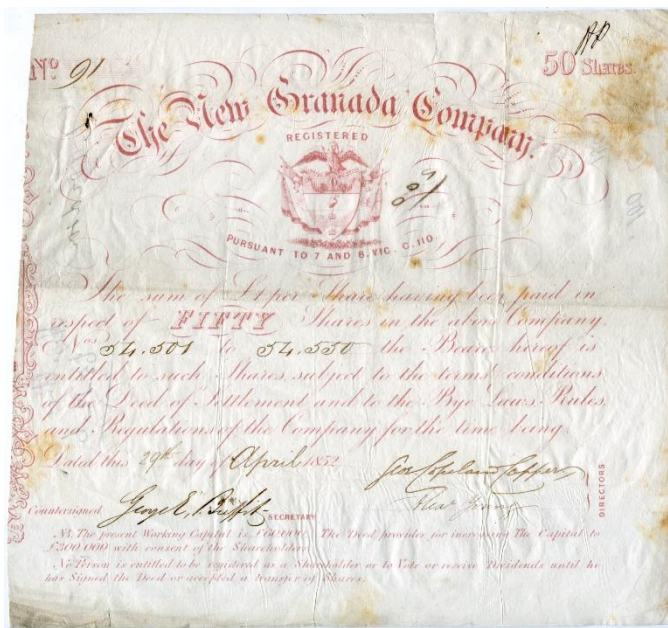 No 91
50 Shares.
The New Granada Company.
REGISTERED
PURSUANT TO 7 AND 8. VIC. C. 110.
The sum of £1 per Share having been paid in
respect of FIFTY Shares in the above Company
Nos 54.501 to 54.550 the Bearer hereof is
entitled to such Shares, subject to the terms & conditions
of the Deed of Settlement and to the Bye Laws, Rules,
and Regulations of the Company for the time being.
Dated this 29th day of April 1852
Geo Copeland Capper
Countersigned, George E.
SECRETARY
DIRECTORS
NB. The present Working Capital is, The Deed provides for increasing The Capital to
£200,000 with consent of the Shareholders.
No Person is entitled to be registered as a Shareholder or to Vote or receive Dividends until he
has Signed the Deed or accepted a transfer of Shares.